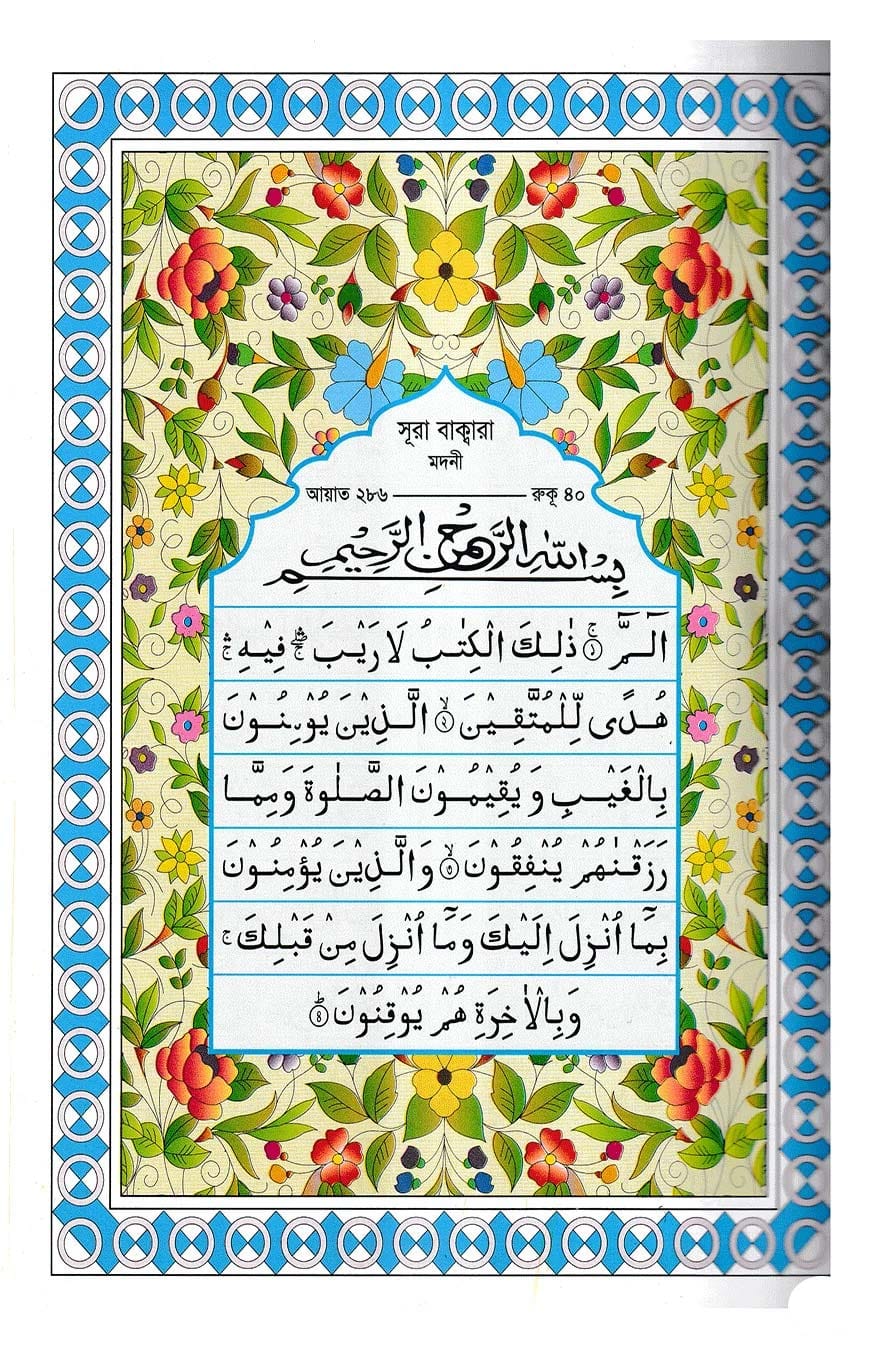 সূরা বাক্বারা
মদনী
আয়াত ২৮৬ রুকূ ৪০
بِسْمِ اللّٰهِ الرَّحْمٰنِ الرَّحِيْمِ
الٓمّٓ ۝١ۚ ذٰلِكَ الْكِتٰبُ لَا رَيْبَ ۛۖۚ فِيْهِ ۛۚ
هُدًى لِّلْمُتَّقِيْنَ ۝٢ۙ الَّذِيْنَ يُؤْمِنُوْنَ
بِالْغَيْبِ وَيُقِيْمُوْنَ الصَّلٰوةَ وَمِمَّا
رَزَقْنٰهُمْ يُنْفِقُوْنَ ۝٣ۙ وَالَّذِيْنَ يُؤْمِنُوْنَ
بِمَآ اُنْزِلَ اِلَيْكَ وَمَآ اُنْزِلَ مِنْ قَبْلِكَ ۚ
وَبِالْاٰخِرَةِ هُمْ يُوْقِنُوْنَ ۝٤ؕ